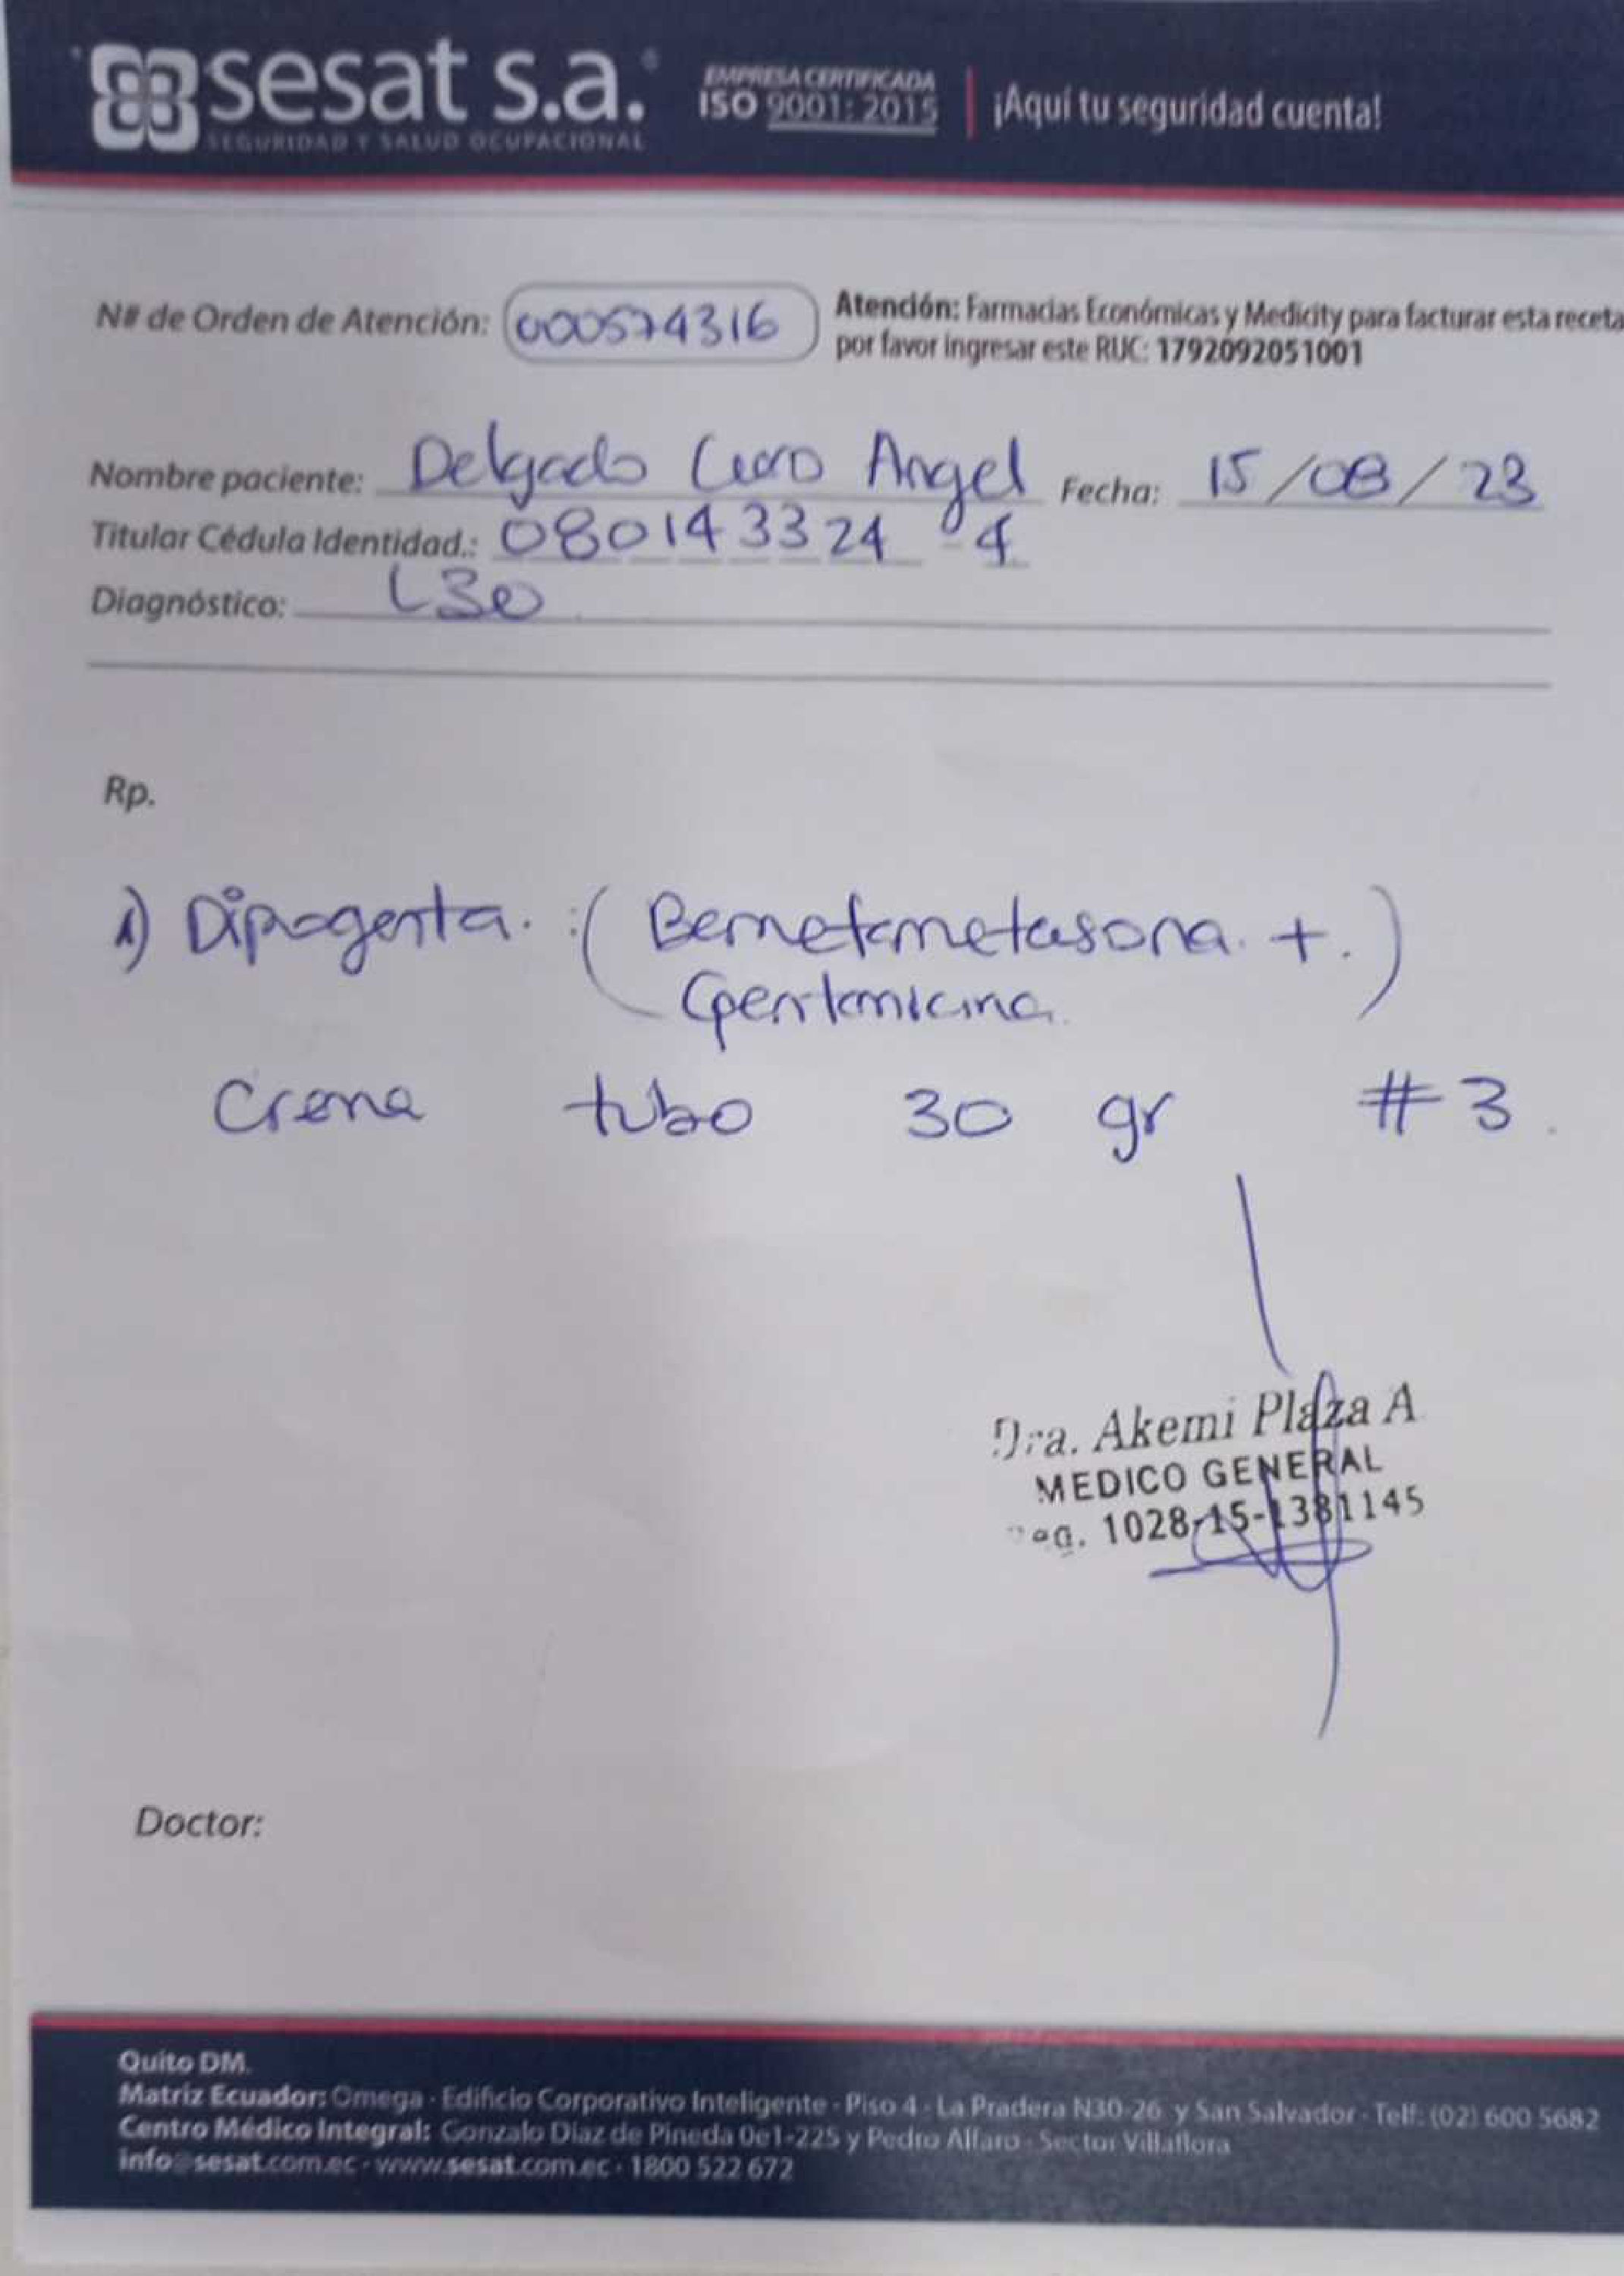 sesat s.a.
SEGURIDAD Y SALUD OCUPACIONAL
EMPRESA CERTIFICADA
ISO 9001: 2015
¡Aquí tu seguridad cuenta!
N# de Orden de Atención: 000574316
Atención: Farmacias Económicas y Medicity para facturar esta receta
por favor ingresar este RUC: 1792092051001
Nombre paciente: Delgado Angel Fecha: 15/08/23
Titular Cédula Identidad.: 080143324-4
Diagnóstico: L30
Rp.
1) Dipogenta. : ( Bemetametasona. + . )
Gentamicina.
Crema tubo 30 gr #3
Dra. Akemi Plaza A
MEDICO GENERAL
Reg. 1028-15-1381145
Doctor:
Quito DM.
Matriz Ecuador: Omega - Edificio Corporativo Inteligente - Piso 4 - La Pradera N30-26 y San Salvador - Telf: (02) 600 5682
Centro Médico Integral: Gonzalo Díaz de Pineda Oe1-225 y Pedro Alfaro - Sector Villaflora
info@sesat.com.ec - www.sesat.com.ec - 1800 522 672